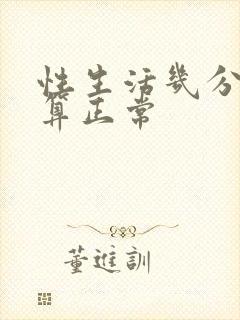 性生活幾分
算正常
董進訓